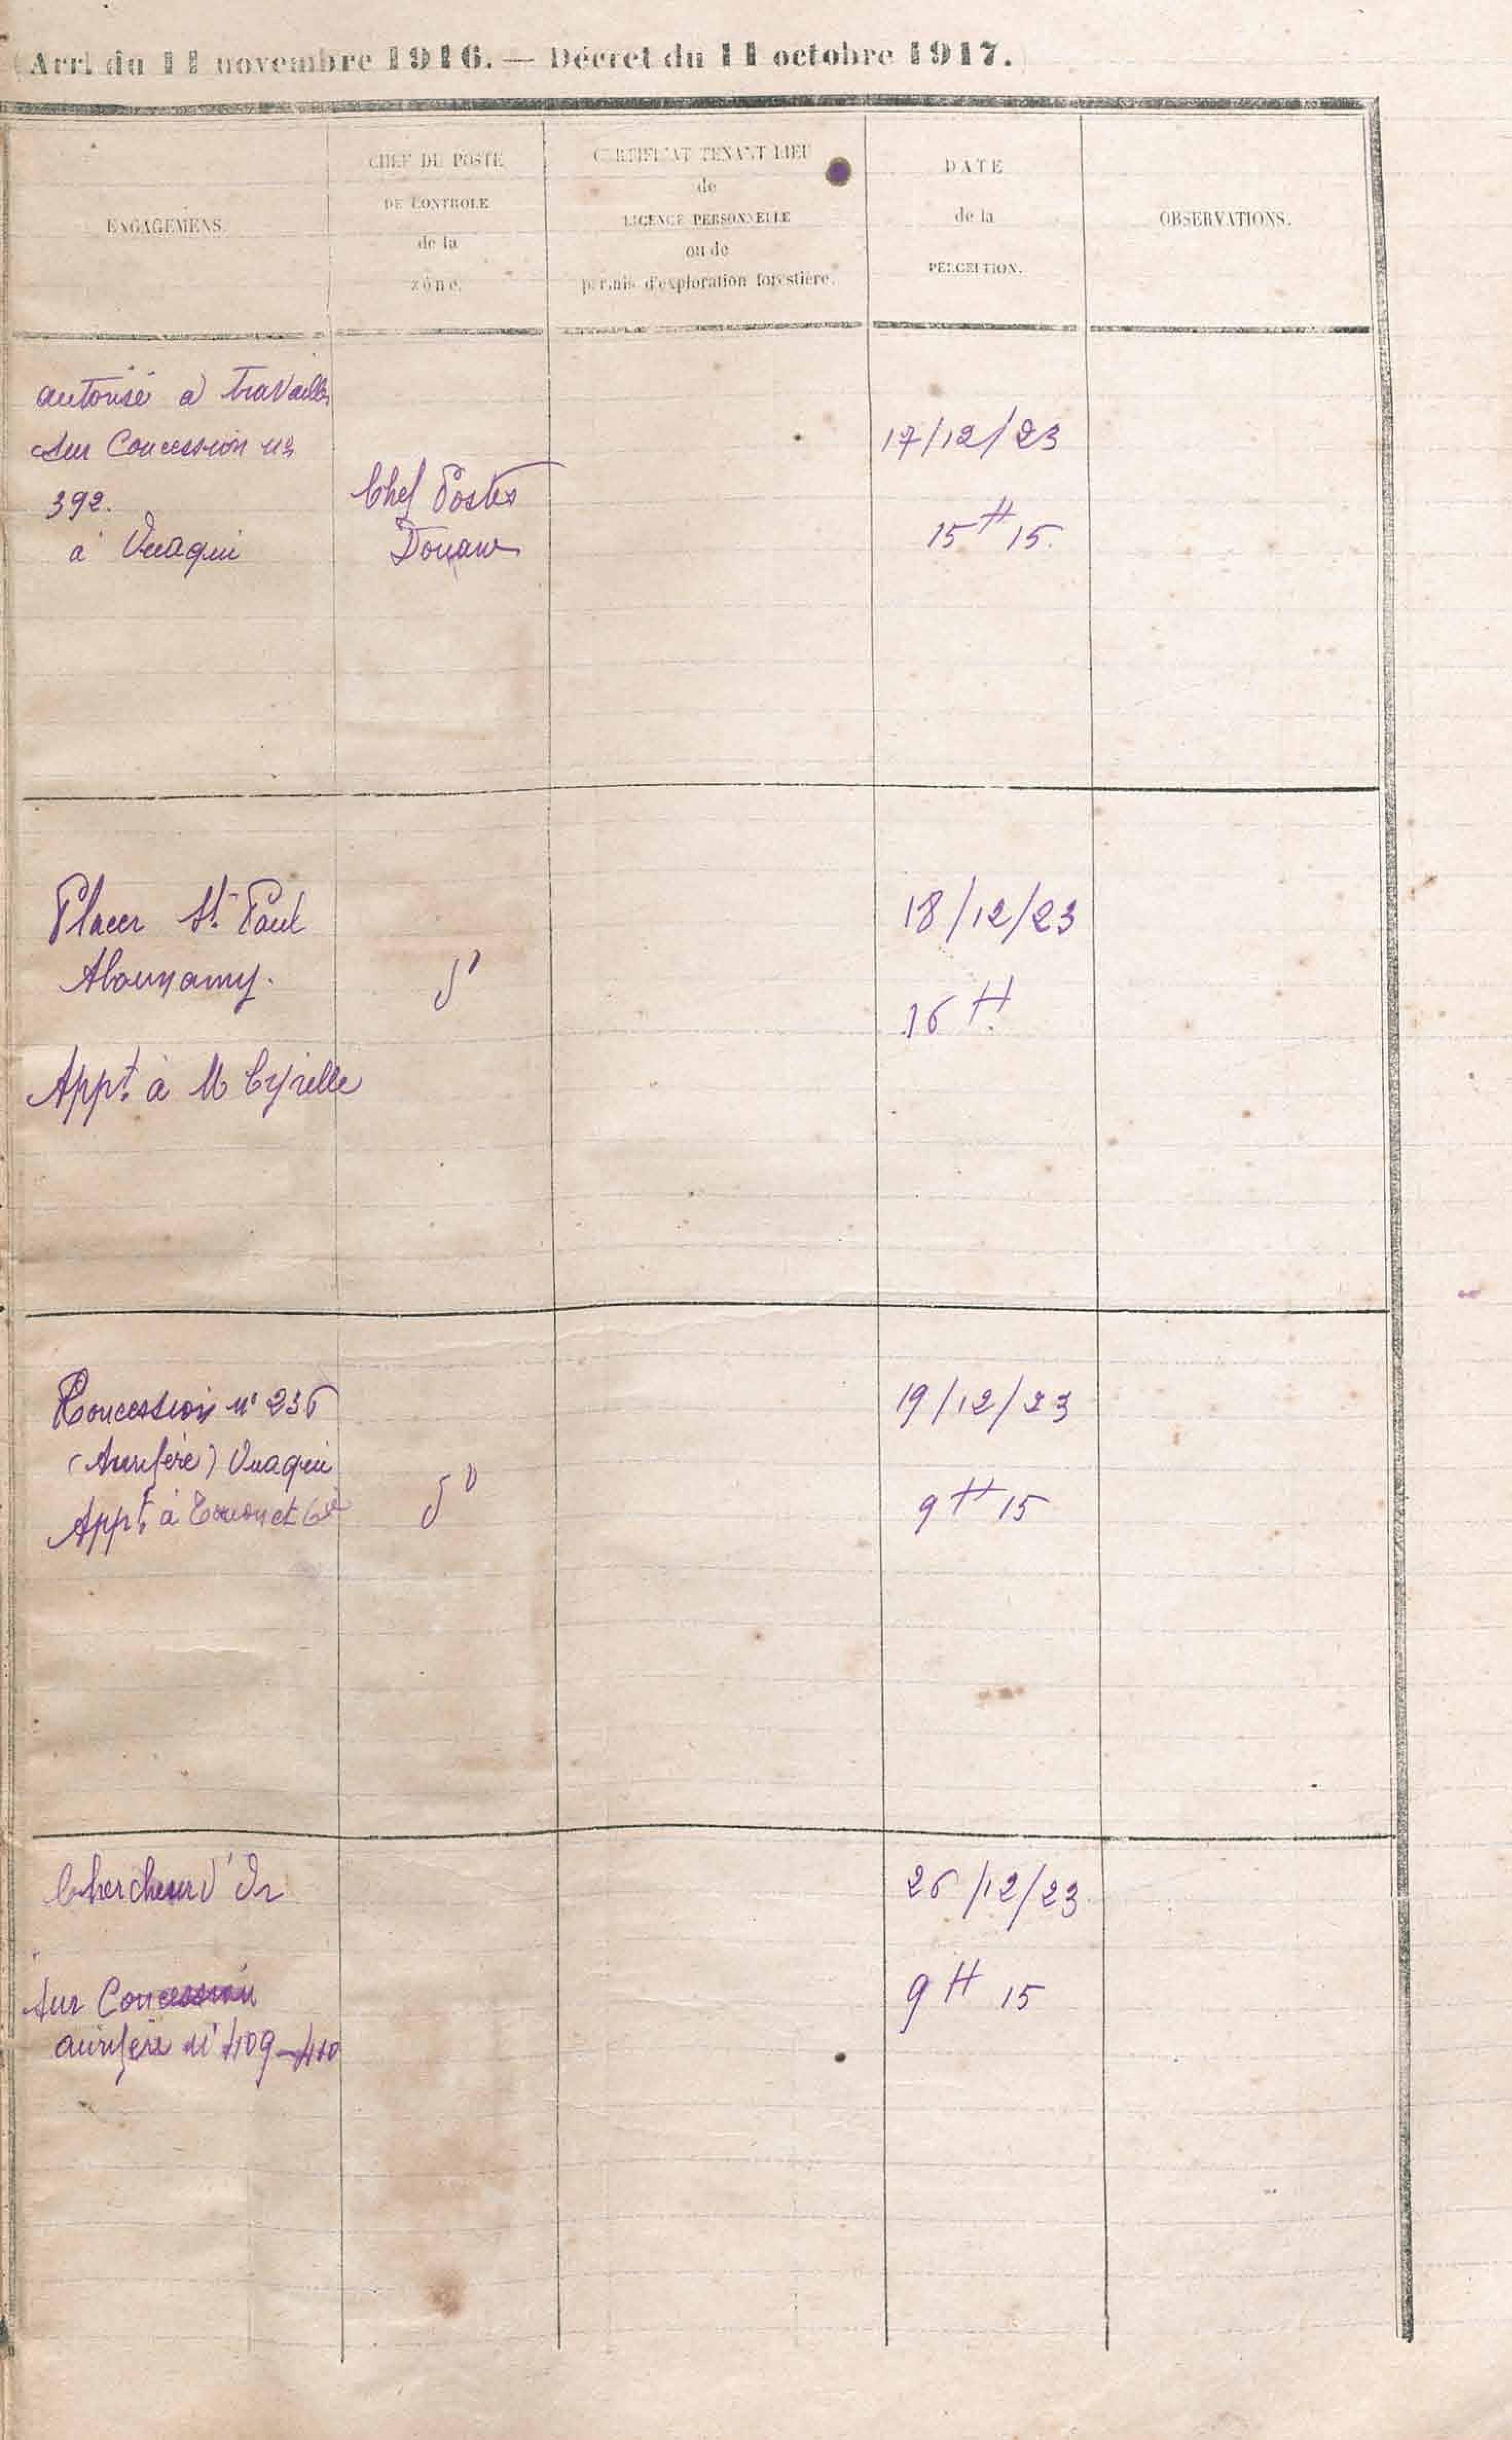 (Arrt du 11 novembre 1916. — Décret du 11 octobre 1917.)
ENGAGEMENS.
CHEF DE POSTE
DE CONTROLE
de la
zône.
CERTIFICAT TENANT LIEU
de
LICENCE PERSONNELLE
ou de
permis d'exploration forestière.
DATE
de la
PERCEPTION.
OBSERVATIONS.
autorisé à travailler
sur Concession no
392.
à Ouaqui
Chef Postes
Douane
17/12/23
15H 15.
Placer St Paul
Abounamy.
Appt. à M Cyrille
do
18/12/23
16 H.
Concession no 236
(Aurifère) Ouaqui
Appt. à et Cie
do
19/12/23
9 H 15
Chercheur d'Or
sur Concession
aurifère no 409-410
26/12/23
9 H 15